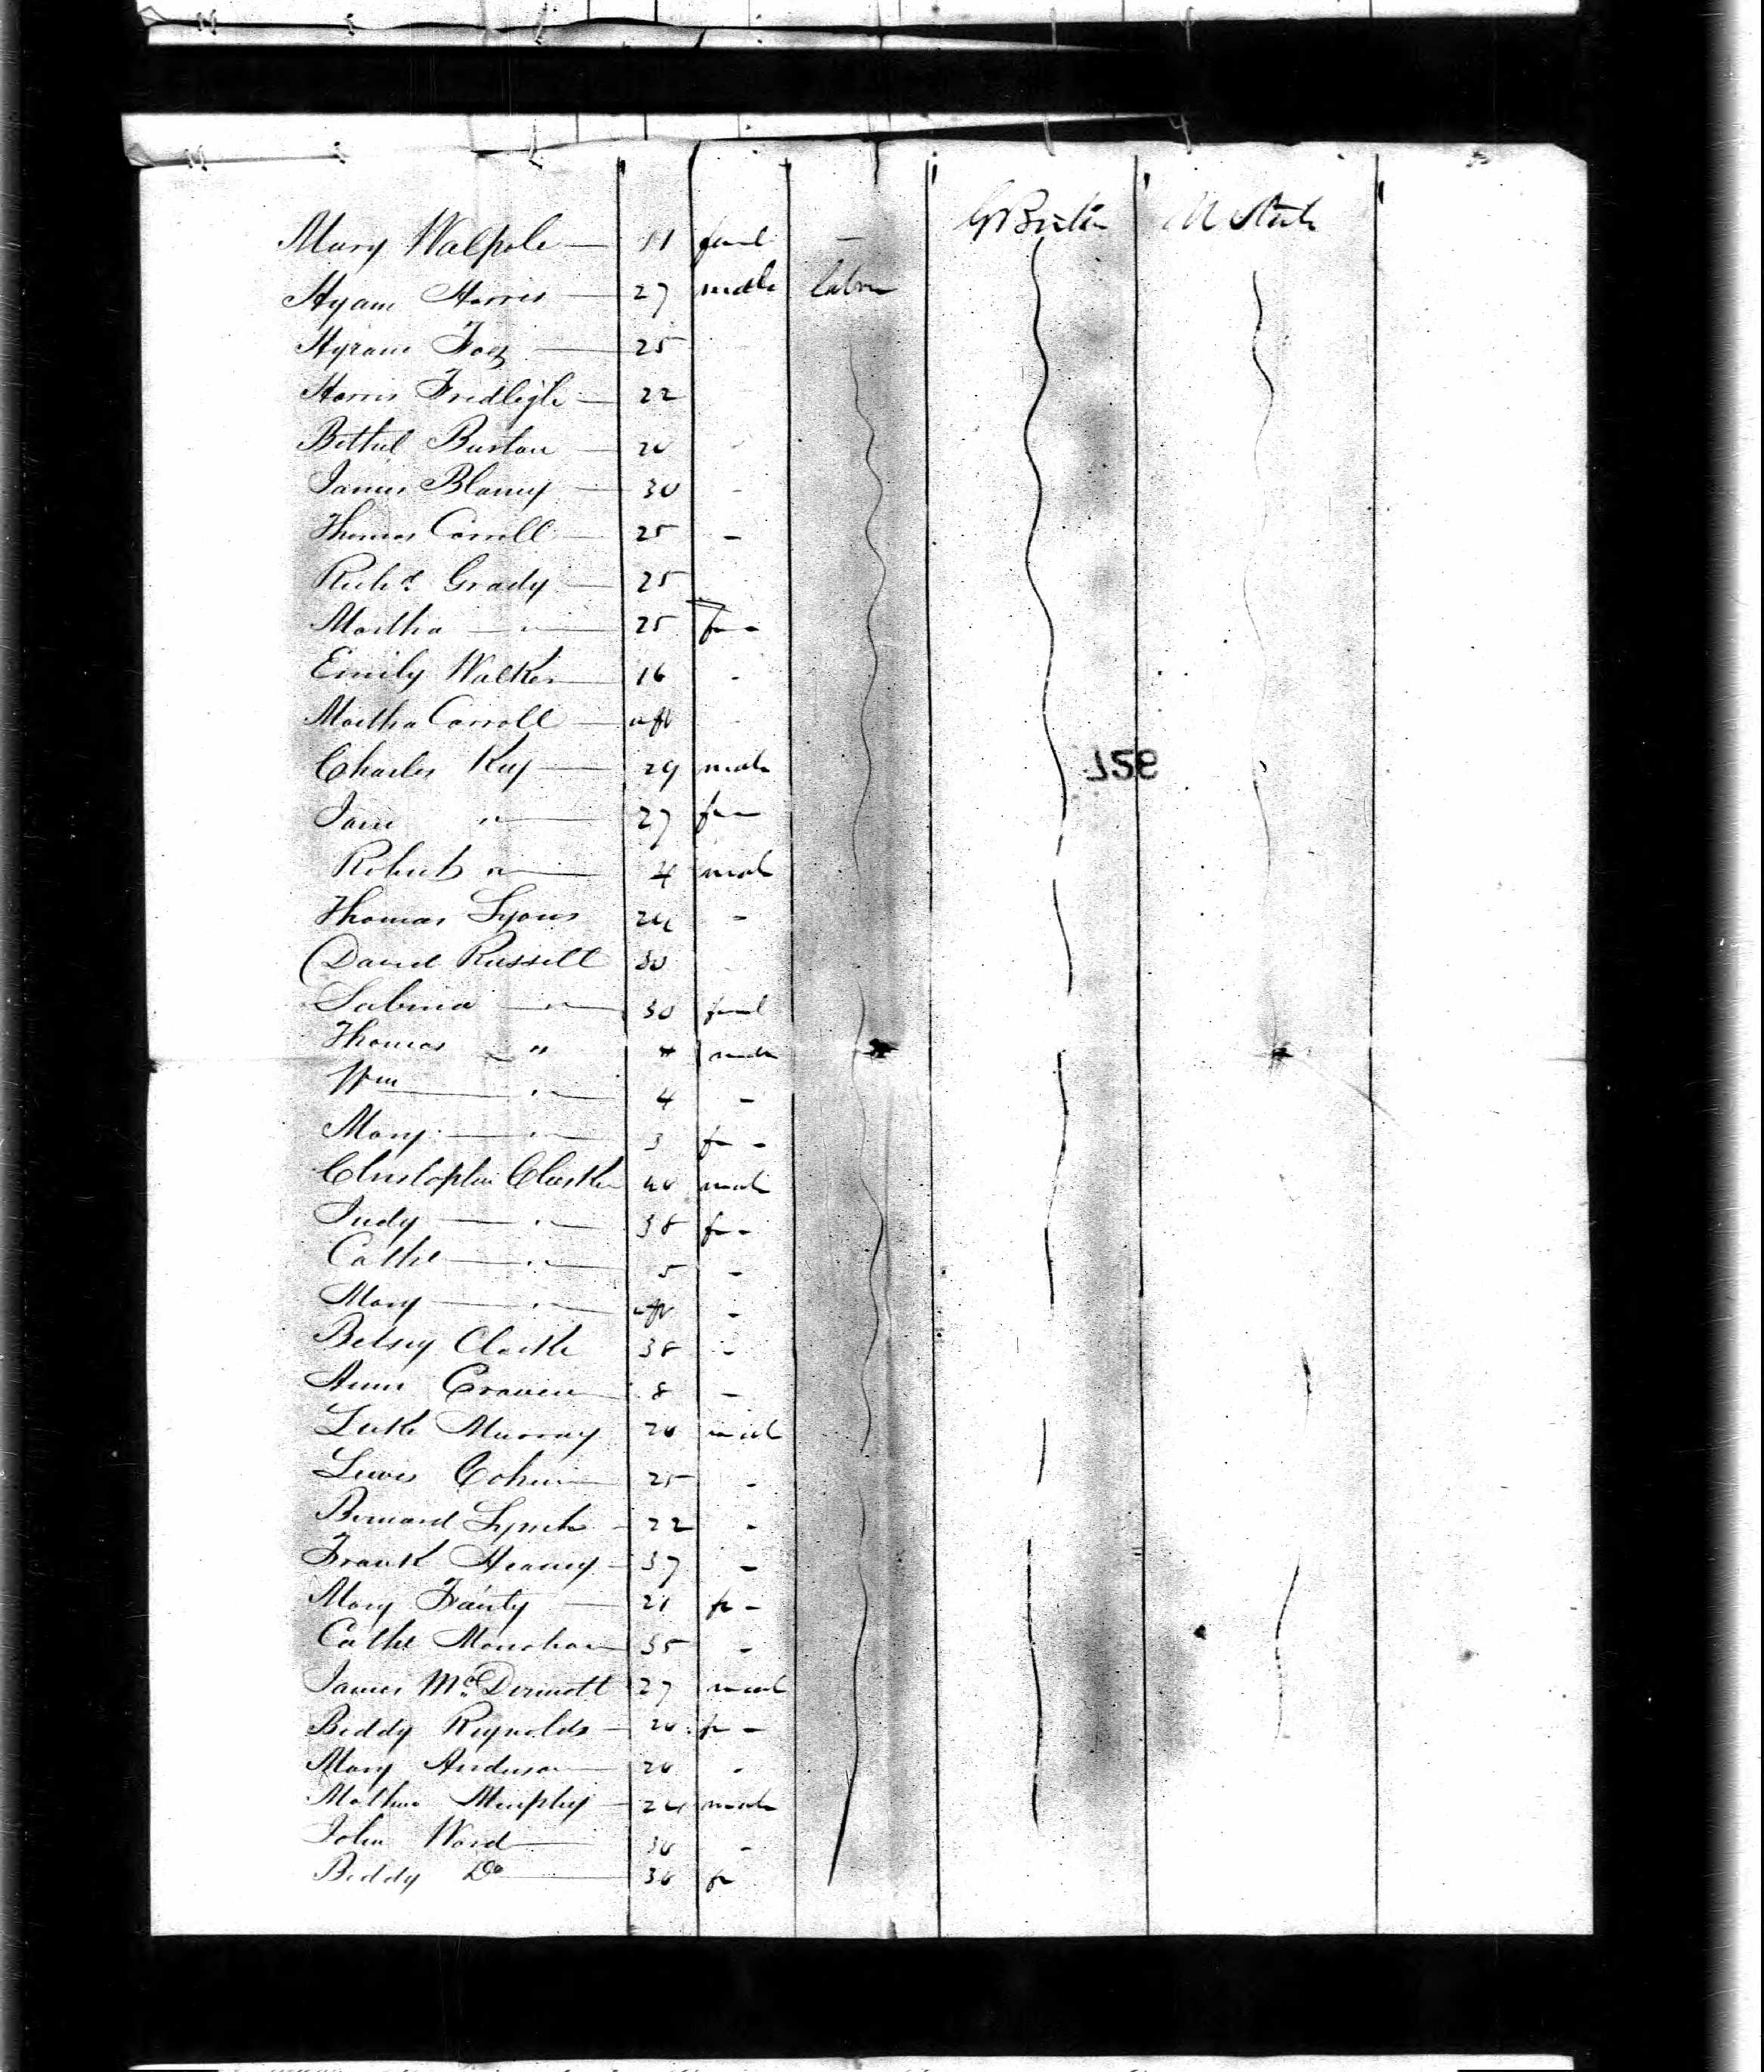 G Britain U State
Mary Walpole — 11 femal —
Hyam Harris — 27 male labor
Hyram — 25
Harris — 22
Bethel Burton — 20
James Blamy — 30 -
Thomas Carroll — 25 -
Richd Grady — 25
Martha — " — 25 fe -
Emily Walker — 16 -
Martha Carroll — inft -
Charles Kay — 29 male
Jane " — 27 fe —
Robert " — 4 male
Thomas Lyons 24 -
David Russell 30
Sabina — " — 30 femal
Thomas " 4 male
Wm — " — 4 -
Mary — " — 3 fe -
40 male
Judy — " — 38 fe -
Cathe — " — 5 -
Mary — " — inft -
Betsey Clarke 38 -
Ann Craven 8 -
Luke Murray 20 male
Lewis Cohen 25 -
Bernard Lynch - 22 -
Frank Heaney - 37 -
Mary — 21 fe -
Cathe Monahan 35 -
James McDermott 27 male
Biddy Reynolds - 20 fe -
Mary Anderson 20 -
Murphy - 24 male
John Ward — 30 -
Biddy Do — 30 fe